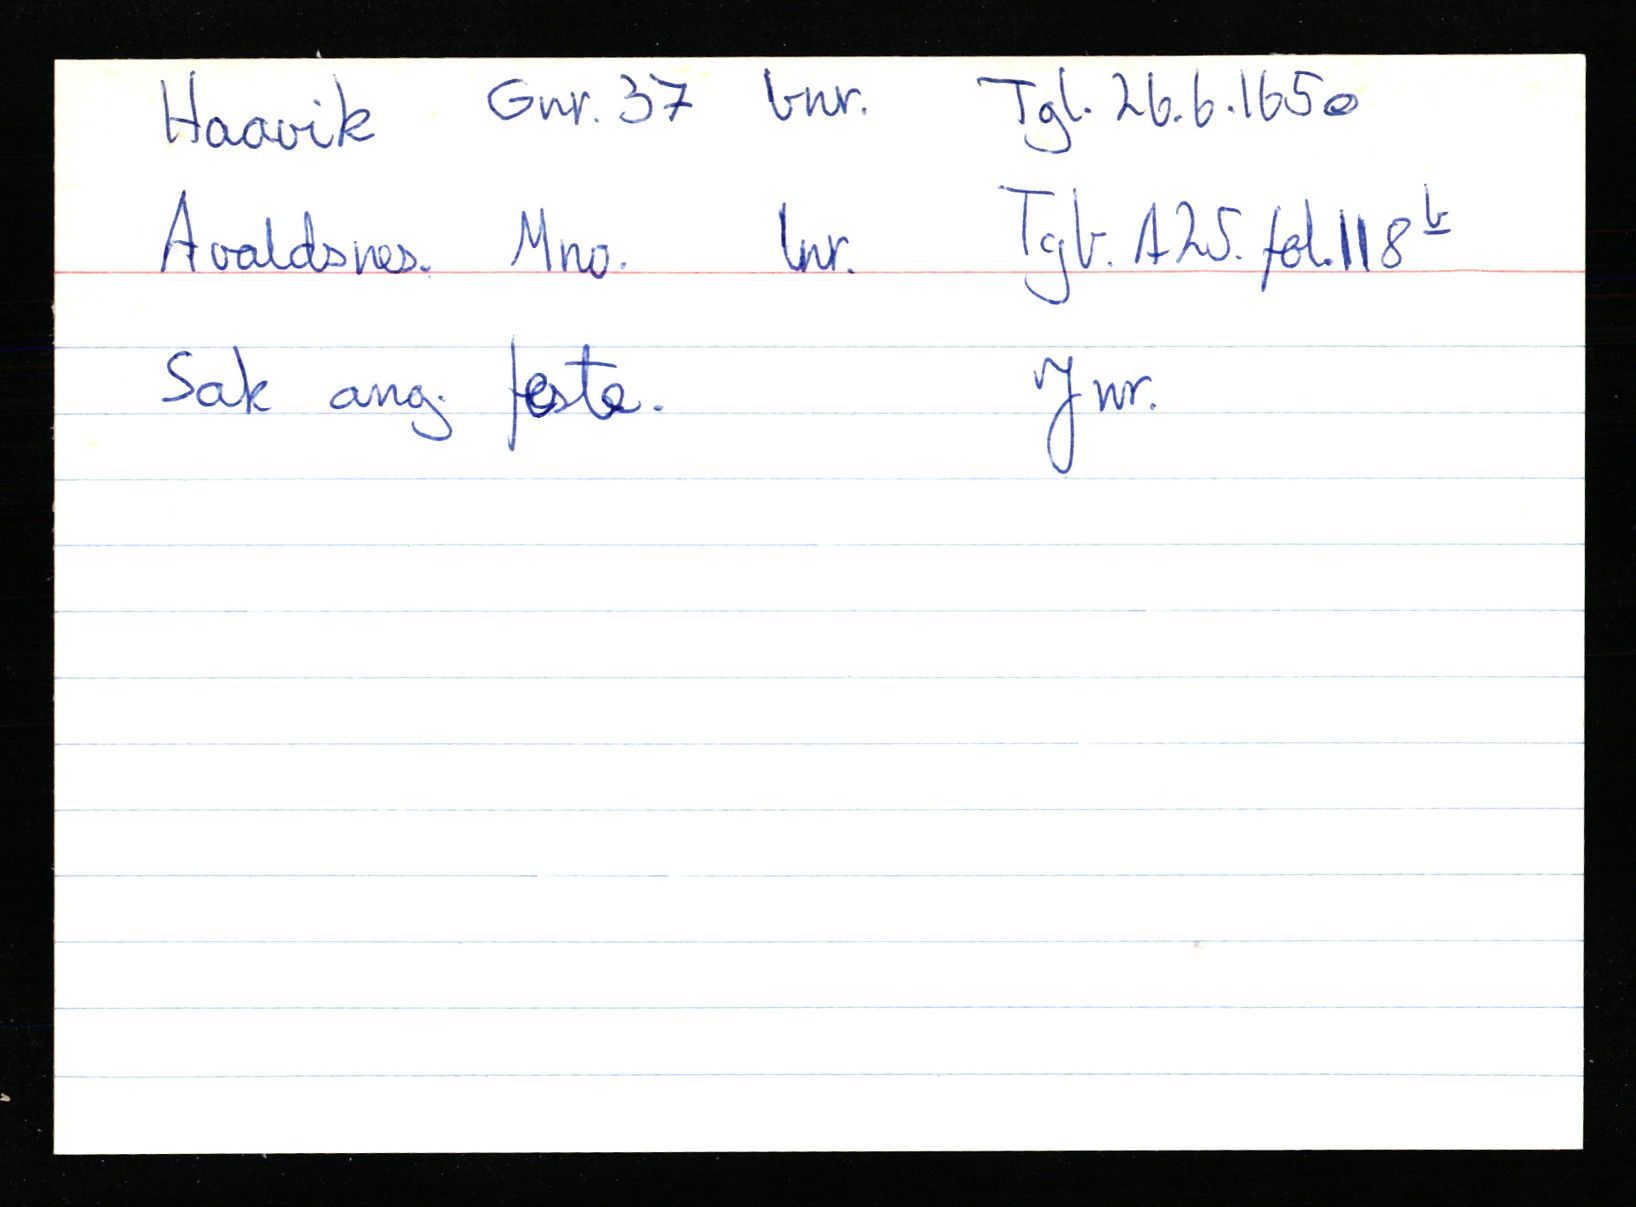 Haavik Gnr. 37 bnr. Tgl. 26.6.1650
Avaldsnes. Mno. lnr. Tgb. A25. fol. 118 b
Sak ang. feste. Jnr.